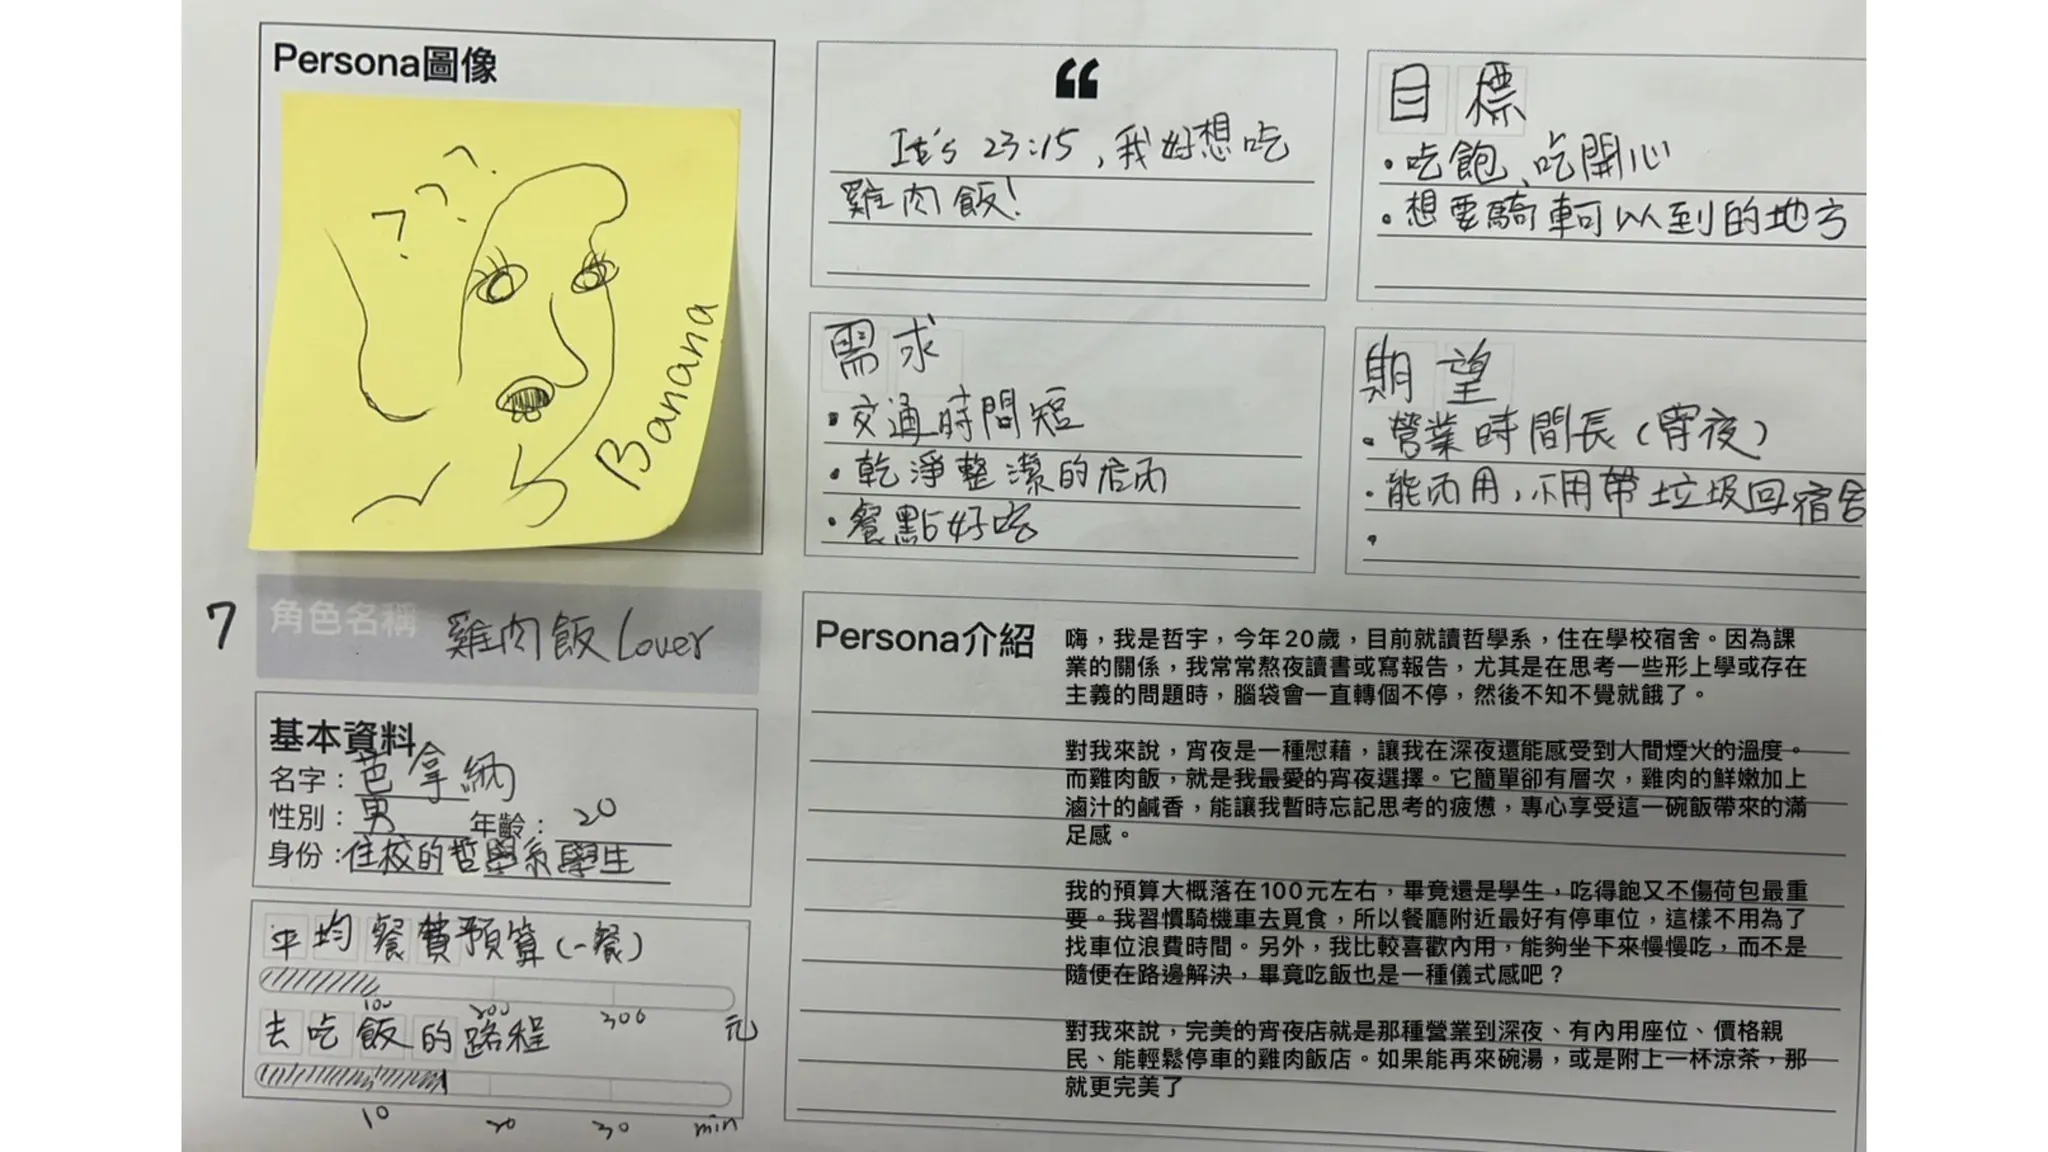 Persona圖像
? ? ?
Banana
“
It's 23:15，我好想吃
雞肉飯！
目標
・吃飽、吃開心
・想要騎車可以到的地方
需求
・交通時間短
・乾淨整潔的店內
・餐點好吃
期望
・營業時間長（宵夜）
・能內用，不用帶垃圾回宿舍
・
7
角色名稱 雞肉飯 Lover
基本資料
名字：芭拿納
性別：男 年齡：20
身份：住校的哲學系學生
平均餐費預算（一餐）
100 200 300 元
去吃飯的路程
10 20 30 min
Persona介紹
嗨，我是哲宇，今年20歲，目前就讀哲學系，住在學校宿舍。因為課
業的關係，我常常熬夜讀書或寫報告，尤其是在思考一些形上學或存在
主義的問題時，腦袋會一直轉個不停，然後不知不覺就餓了。
對我來說，宵夜是一種慰藉，讓我在深夜還能感受到人間煙火的溫度。
而雞肉飯，就是我最愛的宵夜選擇。它簡單卻有層次，雞肉的鮮嫩加上
滷汁的鹹香，能讓我暫時忘記思考的疲憊，專心享受這一碗飯帶來的滿
足感。
我的預算大概落在100元左右，畢竟還是學生，吃得飽又不傷荷包最重
要。我習慣騎機車去覓食，所以餐廳附近最好有停車位，這樣不用為了
找車位浪費時間。另外，我比較喜歡內用，能夠坐下來慢慢吃，而不是
隨便在路邊解決，畢竟吃飯也是一種儀式感吧？
對我來說，完美的宵夜店就是那種營業到深夜、有內用座位、價格親
民、能輕鬆停車的雞肉飯店。如果能再來碗湯，或是附上一杯涼茶，那
就更完美了